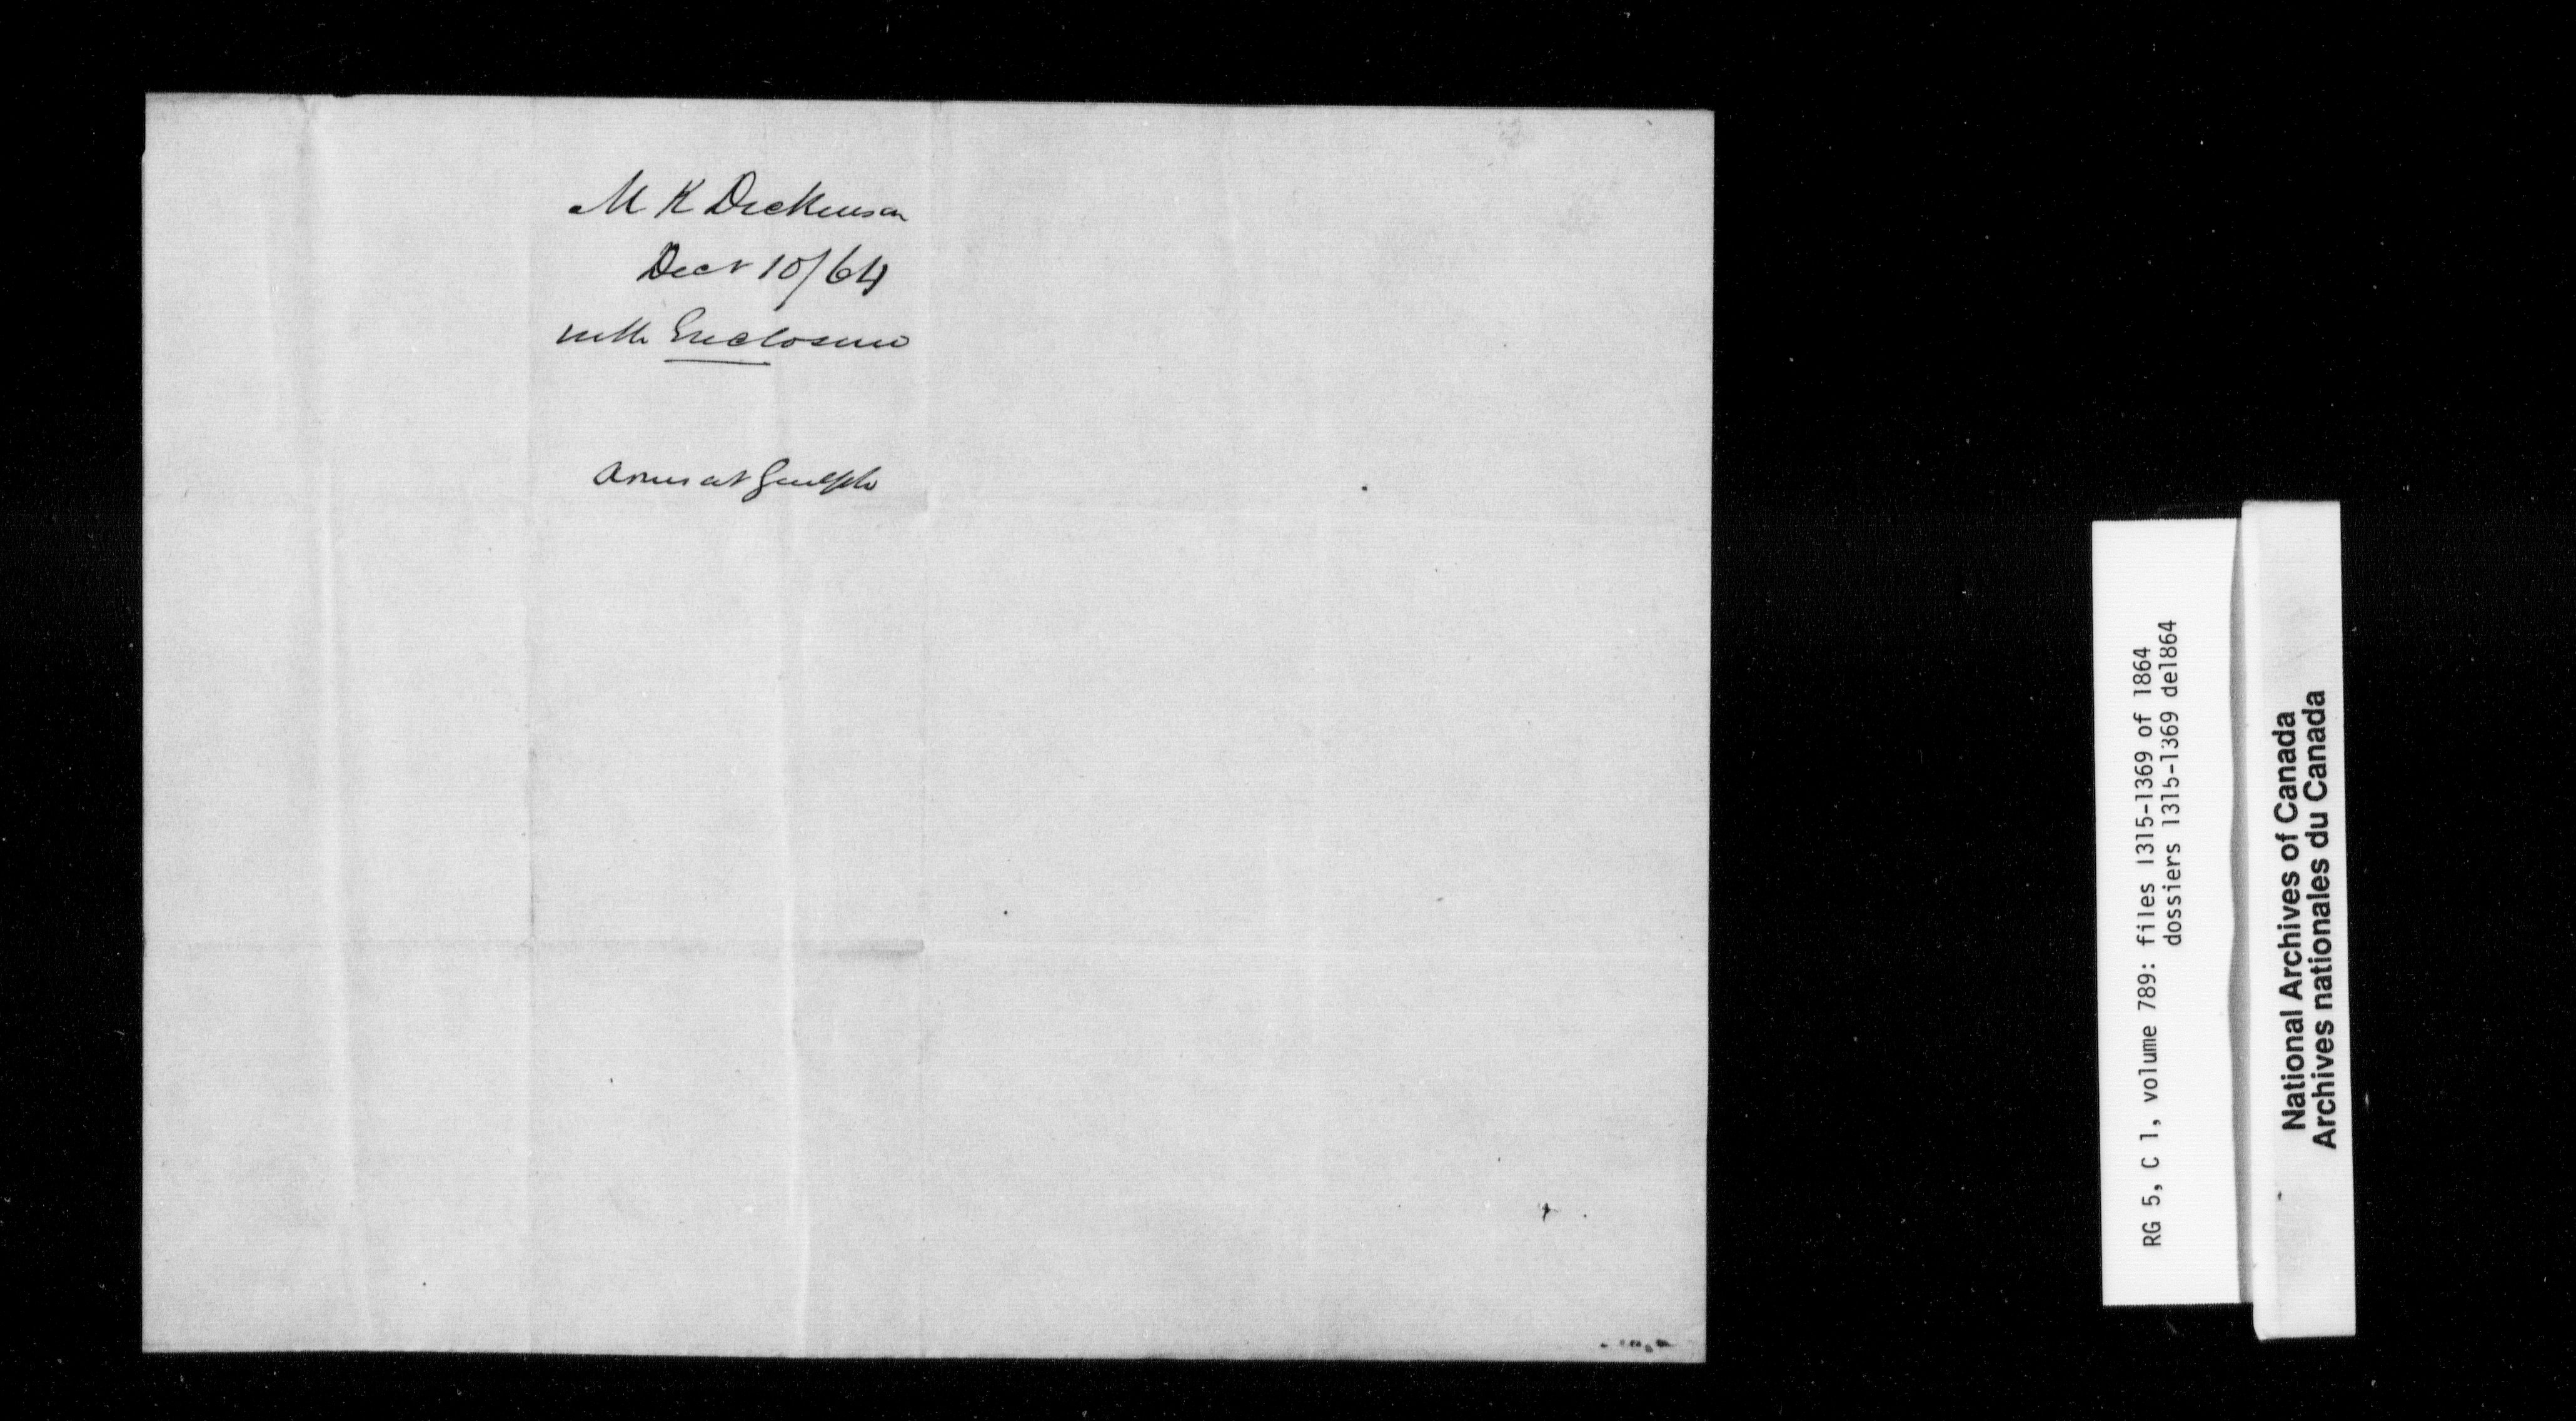 M K Dickinson
Decr 10/64
with Enclosure
Arms at Guelph
RG 5, C 1, volume 789: files 1315-1369 of 1864
dossiers 1315-1369 de1864
National Archives of Canada
Archives nationales du Canada